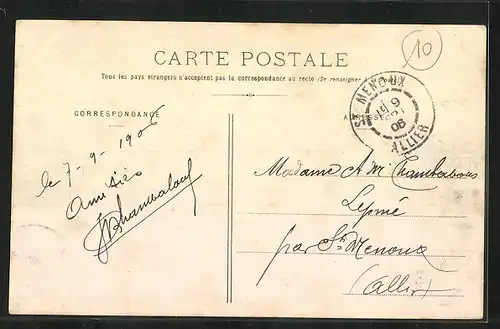 CARTE POSTALE
10
Tous les pays étrangers n'acceptent pas la correspondance au recto (Se renseigner
CORRESPONDANCE
ADRESSE
ST MENOUX
9
06
ALLIER
le 7-9-190
Amitiés
Madame A M
par St Menoux
(Allier)